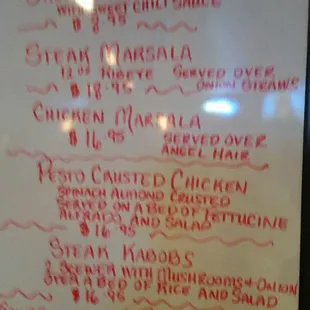 with sweet chili sauce
$ 8.95
Steak Marsala
12 oz Ribeye Served over
$ 18.95 onion straws
Chicken Marsala
$ 16.95 Served over
angel hair
Pesto Causted Chicken
Spinach almond crusted
served on a bed of fettucine
alfrado and salad
$ 16.95
Steak Kabobs
2 Scewer with mushrooms + onion
over a bed of rice and salad
$ 16.95